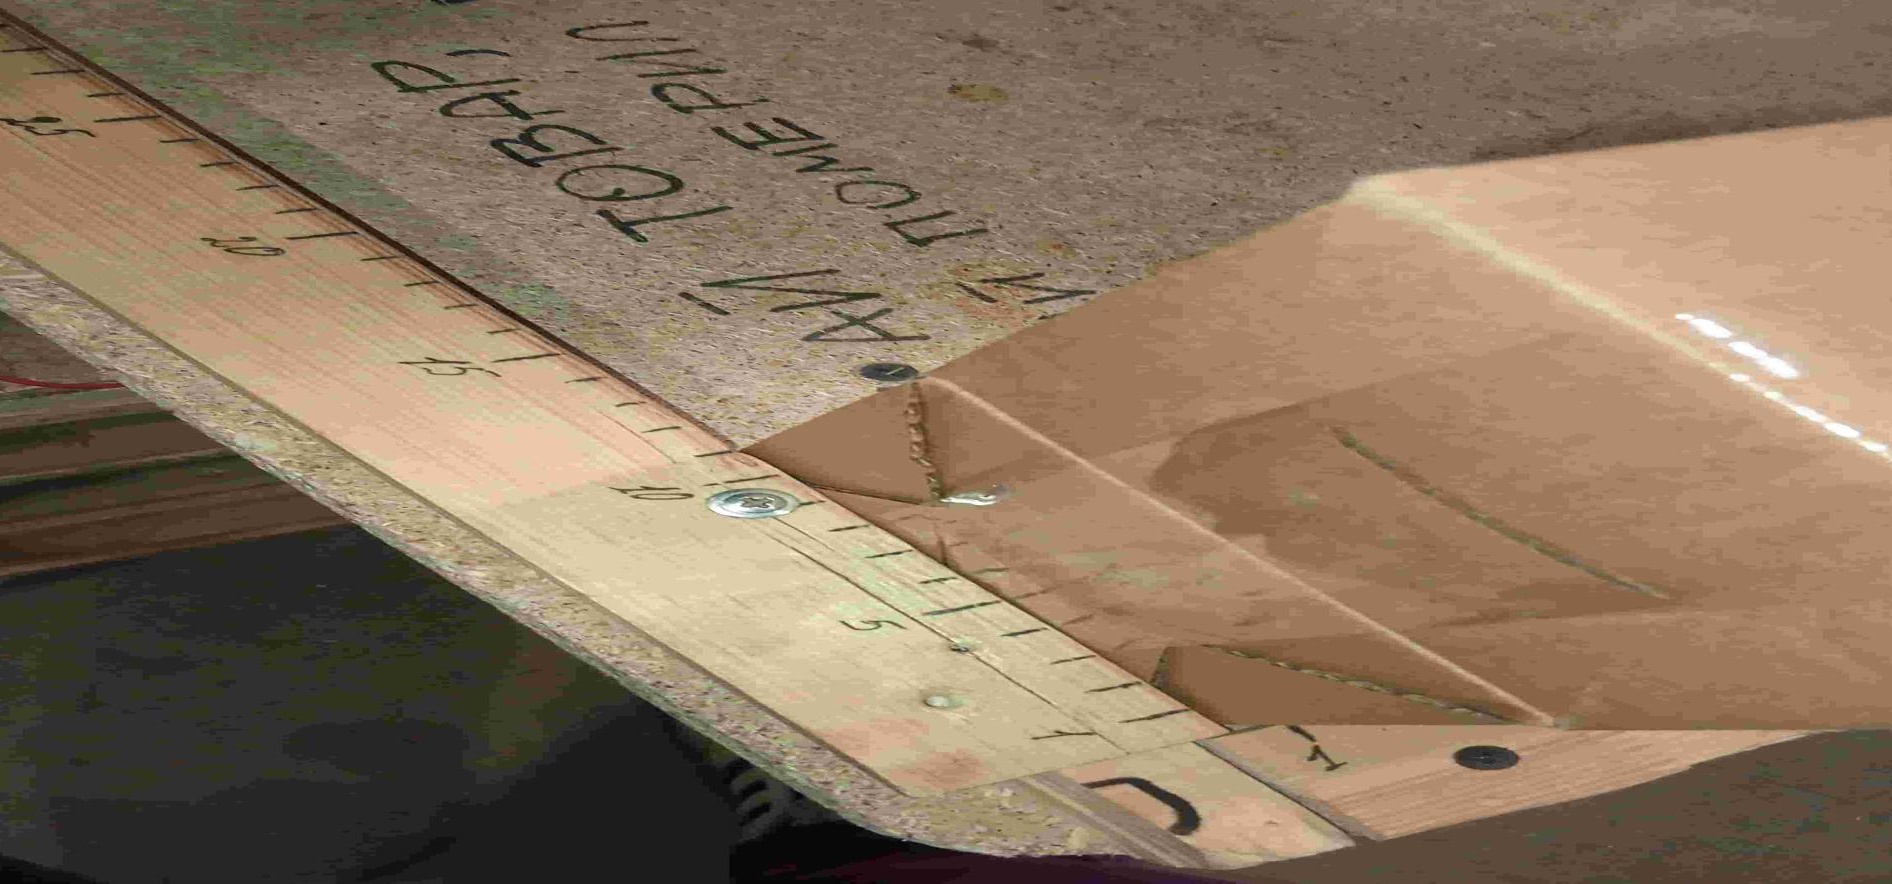 АЙ ТОВАР,
Й ПОМЕРИЛ
25
20
15
10
5
1
1